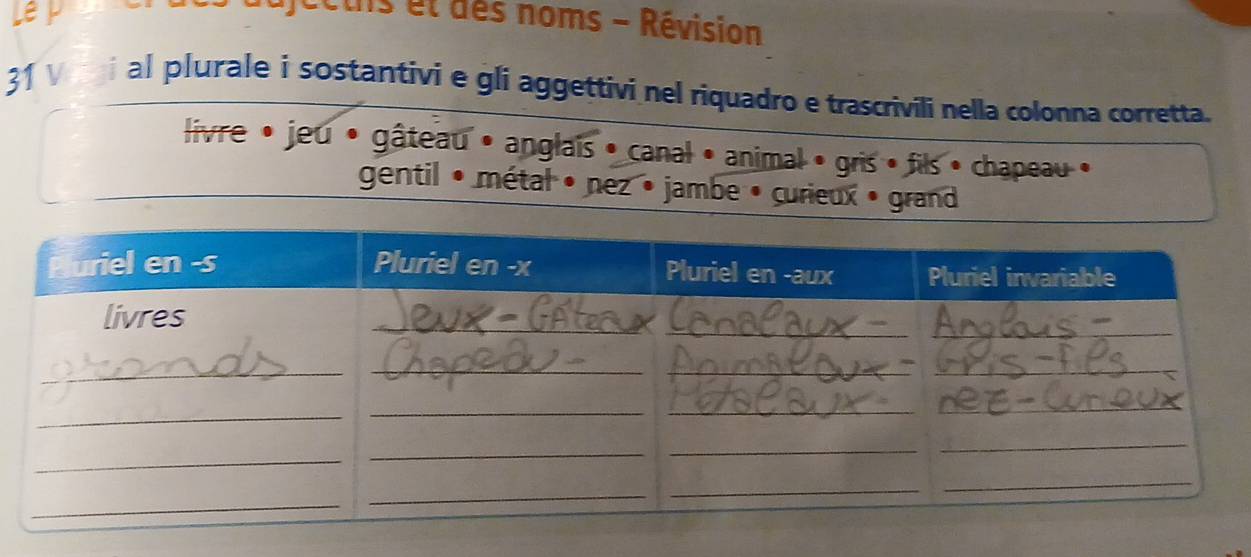 et des noms - Révision
31 al plurale i sostantivi e gli aggettivi nel riquadro e trascrivili nella colonna corretta.
livre • jeu • gâteau • anglais • canal • animal • gris • fils • chapeau •
gentil • métal • nez • jambe • curieux • grand
Pluriel en -s Pluriel en -x Pluriel en -aux Pluriel invariable
livres Jeux - GÂteaux Canalaux - Anglais -
grands Chapeau - Animalaux - Gris - Fils
Métalaux - nez - Curieux